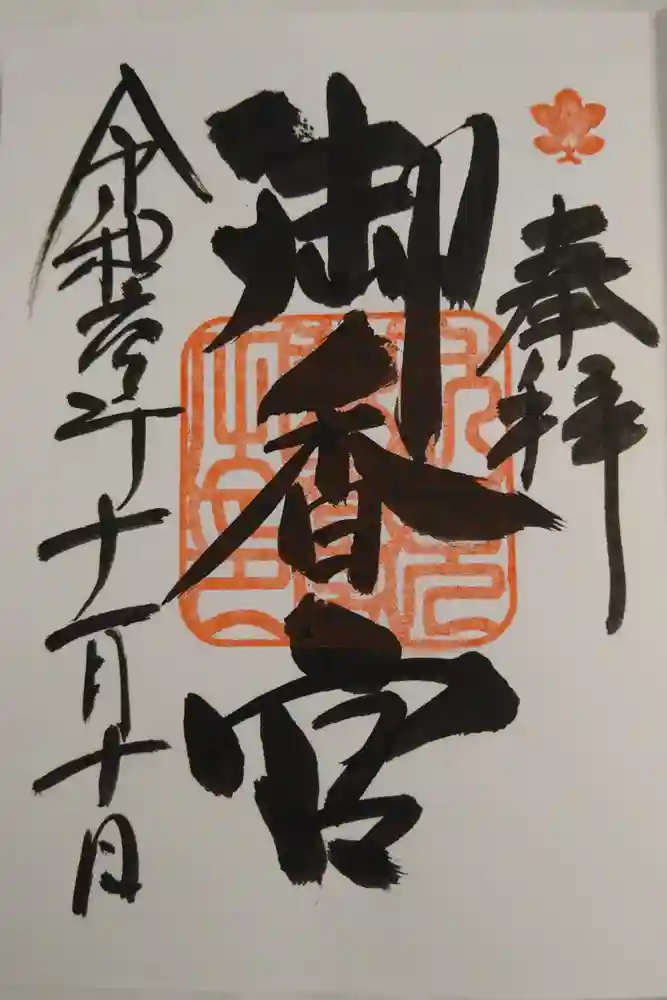 奉拝
御香宮
令和六年十一月十日